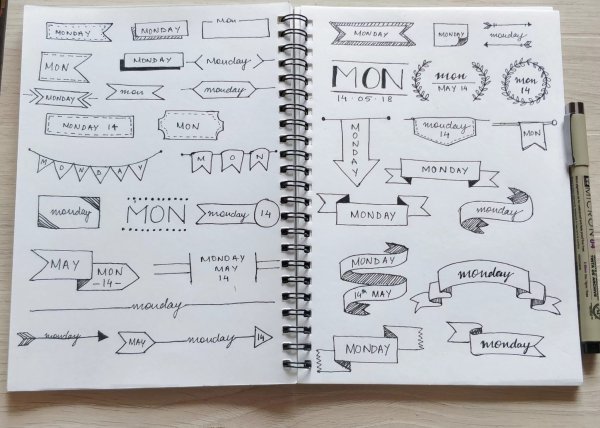 MONDAY
MONDAY
mon
MON
MONDAY
Monday
MONDAY
mon
monday
MONDAY 14
MON
MONDAY
MON
monday
MON
monday 14
MAY
MON
-14-
MONDAY
MAY
14
monday
monday
MAY
monday
14
MONDAY
MONDAY
monday
MON
14·05·18
mon
MAY 14
mon
14
MONDAY
monday
14
MON
MONDAY
MONDAY
monday
MONDAY
14th MAY
monday
MONDAY
monday
MICRON